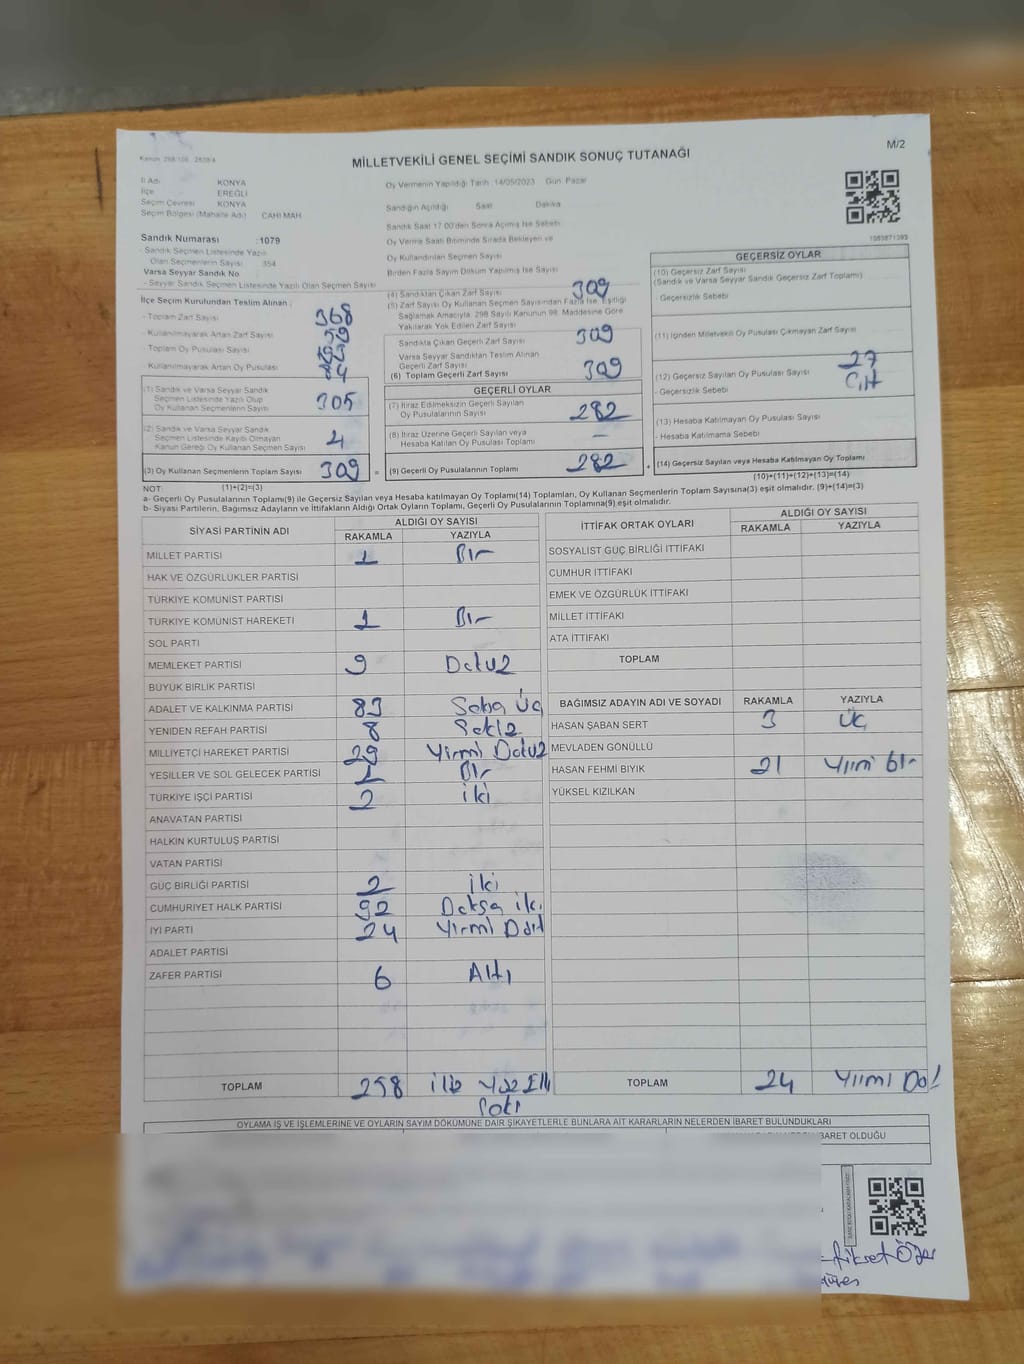 M/2
MİLLETVEKİLİ GENEL SEÇİMİ SANDIK SONUÇ TUTANAĞI
İl Adı KONYA
İlçe EREĞLİ
Seçim Çevresi KONYA
Seçim Bölgesi (Mahalle Adı) CAHI MAH
Sandık Numarası :1079
- Sandık Seçmen Listesinde Yazılı
Olan Seçmenlerin Sayısı : 354
Varsa Seyyar Sandık No
- Seyyar Sandık Seçmen Listesinde Yazılı Olan Seçmen Sayısı
Oy Vermenin Yapıldığı Tarih :14/05/2023 Gün: Pazar
Sandığın Açıldığı Saat Dakika
Sandık Saat 17.00'den Sonra Açılmış İse Sebebi
Oy Verme Saati Bitiminde Sırada Bekleyen ve
Oy Kullandırılan Seçmen Sayısı
Birden Fazla Sayım Döküm Yapılmış İse Sayısı
İlçe Seçim Kurulundan Teslim Alınan :
- Toplam Zarf Sayısı 368
- Kullanılmayarak Artan Zarf Sayısı 59
- Toplam Oy Pusulası Sayısı
- Kullanılmayarak Artan Oy Pusulası 84
(1) Sandık ve Varsa Seyyar Sandık
Seçmen Listesinde Yazılı Olup
Oy Kullanan Seçmenlerin Sayısı 305
(2) Sandık ve Varsa Seyyar Sandık
Seçmen Listesinde Kayıtlı Olmayan
Kanun Gereği Oy Kullanan Seçmen Sayısı 4
(3) Oy Kullanan Seçmenlerin Toplam Sayısı 309 =
(1)+(2)=(3)
(4) Sandıktan Çıkan Zarf Sayısı 309
(5) Zarf Sayısı Oy Kullanan Seçmen Sayısından Fazla İse, Eşitliği
Sağlamak Amacıyla, 298 Sayılı Kanunun 98. Maddesine Göre
Yakılarak Yok Edilen Zarf Sayısı
Sandıkta Çıkan Geçerli Zarf Sayısı 309
Varsa Seyyar Sandıktan Teslim Alınan
Geçerli Zarf Sayısı
(6) Toplam Geçerli Zarf Sayısı 309
GEÇERLİ OYLAR
(7) İtiraz Edilmeksizin Geçerli Sayılan
Oy Pusulalarının Sayısı 282
(8) İtiraz Üzerine Geçerli Sayılan ve
Hesaba Katılan Oy Pusulası Toplamı —
(9) Geçerli Oy Pusulalarının Toplamı 282 +
GEÇERSİZ OYLAR
(10) Geçersiz Zarf Sayısı
(Sandık ve Varsa Seyyar Sandık Geçersiz Zarf Toplamı)
- Geçersizlik Sebebi
(11) İçinden Milletvekili Oy Pusulası Çıkmayan Zarf Sayısı
(12) Geçersiz Sayılan Oy Pusulası Sayısı 27
- Geçersizlik Sebebi Çift
(13) Hesaba Katılmayan Oy Pusulası Sayısı
- Hesaba Katılmama Sebebi
(14) Geçersiz Sayılan veya Hesaba Katılmayan Oy Toplamı
(10)+(11)+(12)+(13)=(14)
NOT:
a- Geçerli Oy Pusulalarının Toplamı(9) ile Geçersiz Sayılan veya Hesaba katılmayan Oy Toplamı(14) Toplamları, Oy Kullanan Seçmenlerin Toplam Sayısına(3) eşit olmalıdır. (9)+(14)=(3)
b- Siyasi Partilerin, Bağımsız Adayların ve İttifakların Aldığı Ortak Oyların Toplamı, Geçerli Oy Pusulalarının Toplamına(9) eşit olmalıdır.
SİYASİ PARTİNİN ADI ALDIĞI OY SAYISI
RAKAMLA YAZIYLA
MİLLET PARTİSİ 1 Bir
HAK VE ÖZGÜRLÜKLER PARTİSİ
TÜRKİYE KOMÜNİST PARTİSİ
TÜRKİYE KOMÜNİST HAREKETİ 1 Bir
SOL PARTİ
MEMLEKET PARTİSİ 9 Dokuz
BÜYÜK BİRLİK PARTİSİ
ADALET VE KALKINMA PARTİSİ 83 Seksa Üç
YENİDEN REFAH PARTİSİ 8 Sekiz
MİLLİYETÇİ HAREKET PARTİSİ 29 Yirmi Dokuz
YEŞİLLER VE SOL GELECEK PARTİSİ 1 Bir
TÜRKİYE İŞÇİ PARTİSİ 2 iki
ANAVATAN PARTİSİ
HALKIN KURTULUŞ PARTİSİ
VATAN PARTİSİ
GÜÇ BİRLİĞİ PARTİSİ 2 iki
CUMHURİYET HALK PARTİSİ 92 Doksa iki
İYİ PARTİ 24 Yirmi Dört
ADALET PARTİSİ
ZAFER PARTİSİ 6 Altı
TOPLAM 258
İTTİFAK ORTAK OYLARI ALDIĞI OY SAYISI
RAKAMLA YAZIYLA
SOSYALİST GÜÇ BİRLİĞİ İTTİFAKI
CUMHUR İTTİFAKI
EMEK VE ÖZGÜRLÜK İTTİFAKI
MİLLET İTTİFAKI
ATA İTTİFAKI
TOPLAM
BAĞIMSIZ ADAYIN ADI VE SOYADI RAKAMLA YAZIYLA
HASAN ŞABAN SERT 3 Üç
MEVLADEN GÖNÜLLÜ
HASAN FEHMİ BIYIK 21 Yirmi bir
YÜKSEL KIZILKAN
TOPLAM 24
OYLAMA İŞ VE İŞLEMLERİNE VE OYLARIN SAYIM DÖKÜMÜNE DAİR ŞİKAYETLERLE BUNLARA AİT KARARLARIN NELERDEN İBARET BULUNDUKLARI
BARET OLDUĞU